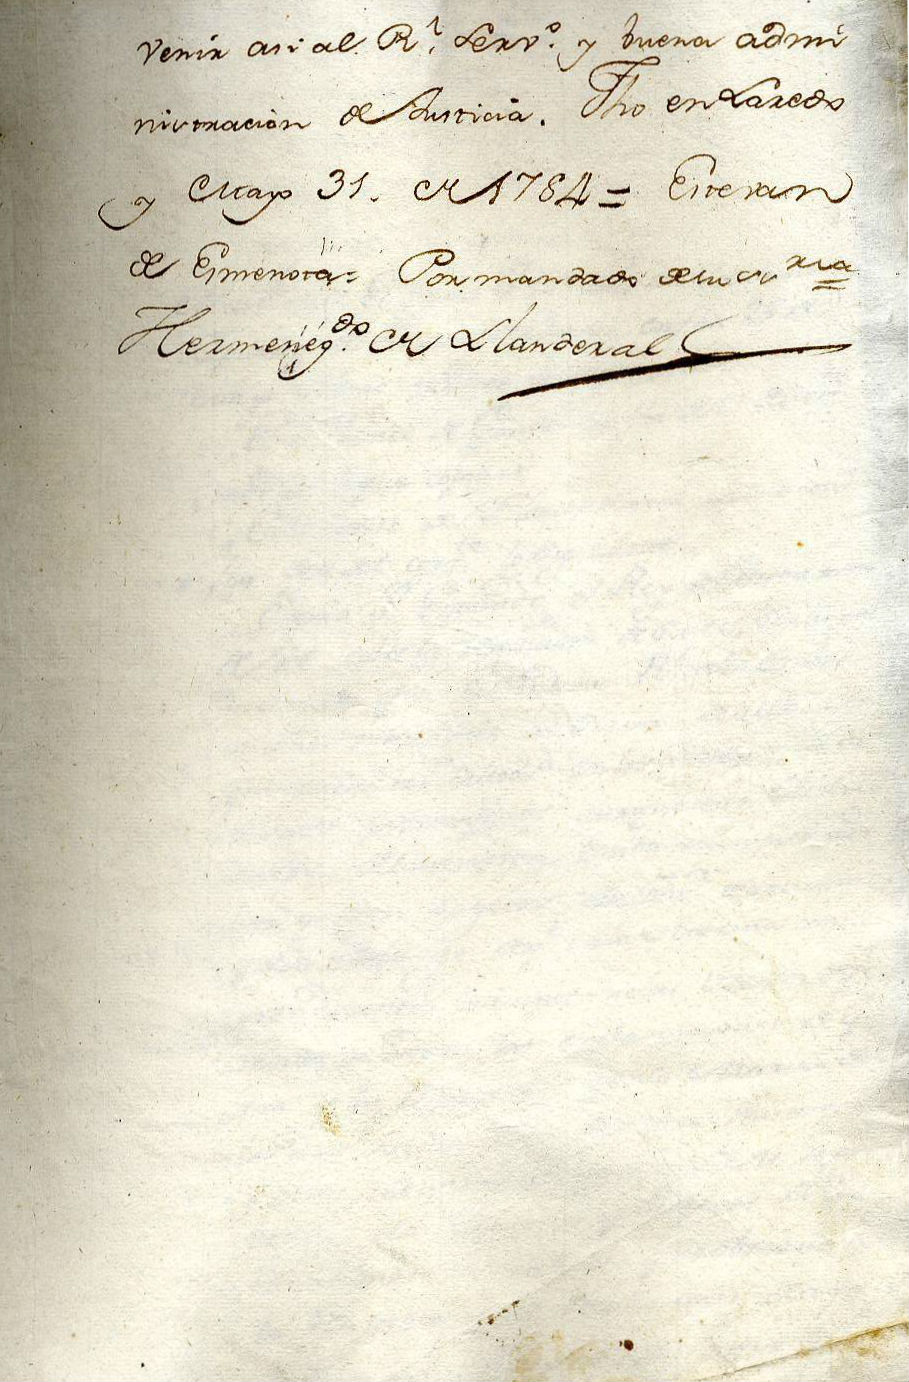 venir asi al R.l Serv.o y buena admi
nistracion de Justicia. Fho en Laredo
y Mayo 31. de 1784 = Estevan
de Esmenota = Por mandado de su mria
Hermeneg.do de Llanderal